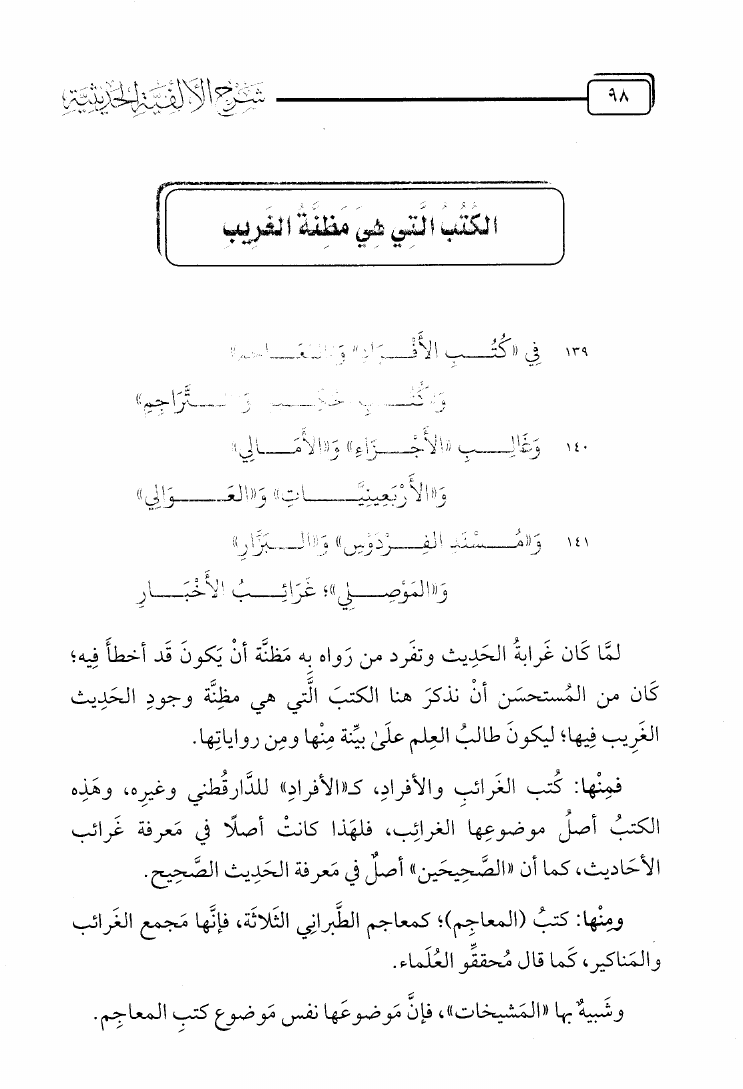 ٩٨ شَرْحُ الأَلْفِيَّةِ الحَدِيثِيَّةِ
الكُتُبُ الَّتِي هِيَ مَظِنَّةُ الغَرِيبِ
١٣٩ فِي «كُتُـبِ الأَفْـرَادِ» وَ«المَعَـاجِمِ»
وَ«كُتُـبِ وَالـتَّرَاجِمِ»
١٤٠ وَغَالِـبِ «الأَجْـزَاءِ» وَ«الأَمَـالِي»
وَ«الأَرْبَعِينِيَّـاتِ» وَ«العَـوَالِي»
١٤١ وَ«مُـسْنَدِ الفِـرْدَوْسِ» وَ«الـبَزَّارِ»
وَ«المَوْصِـلِي»؛ غَرَائِـبُ الأَخْبَـارِ
لمَّا كَان غَرابةُ الحَديث وتفَرد من رَواه بِه مَظنَّة أنْ يَكونَ قَد أخطأَ فِيه؛
كَان من المُستحسَن أنْ نذكرَ هنا الكتبَ الَّتي هي مظِنَّة وجودِ الحَديث
الغَرِيب فِيها؛ ليكونَ طالبُ العِلم علَىٰ بيِّنة مِنْها ومِن رواياتِها.
فمِنْها: كُتب الغَرائبِ والأفرادِ، كـ«الأفرادِ» للدَّارقُطني وغيرِه، وهَذِه
الكتبُ أصلُ موضوعِها الغرائِب، فلهَذا كانتْ أصلًا في مَعرفة غَرائب
الأحاديث، كما أن «الصَّحِيحَين» أصلٌ في مَعرفة الحَدِيث الصَّحيح.
ومِنْها: كتبُ (المعاجِم)؛ كمعاجم الطَّبراني الثّلاثَة، فإنَّها مَجمع الغَرائب
والمَناكير، كَما قال مُحققو العُلَماء.
وشَبيهٌ بها «المَشيخات»، فإنَّ مَوضوعَها نفس مَوضوع كتبِ المعاجِم.